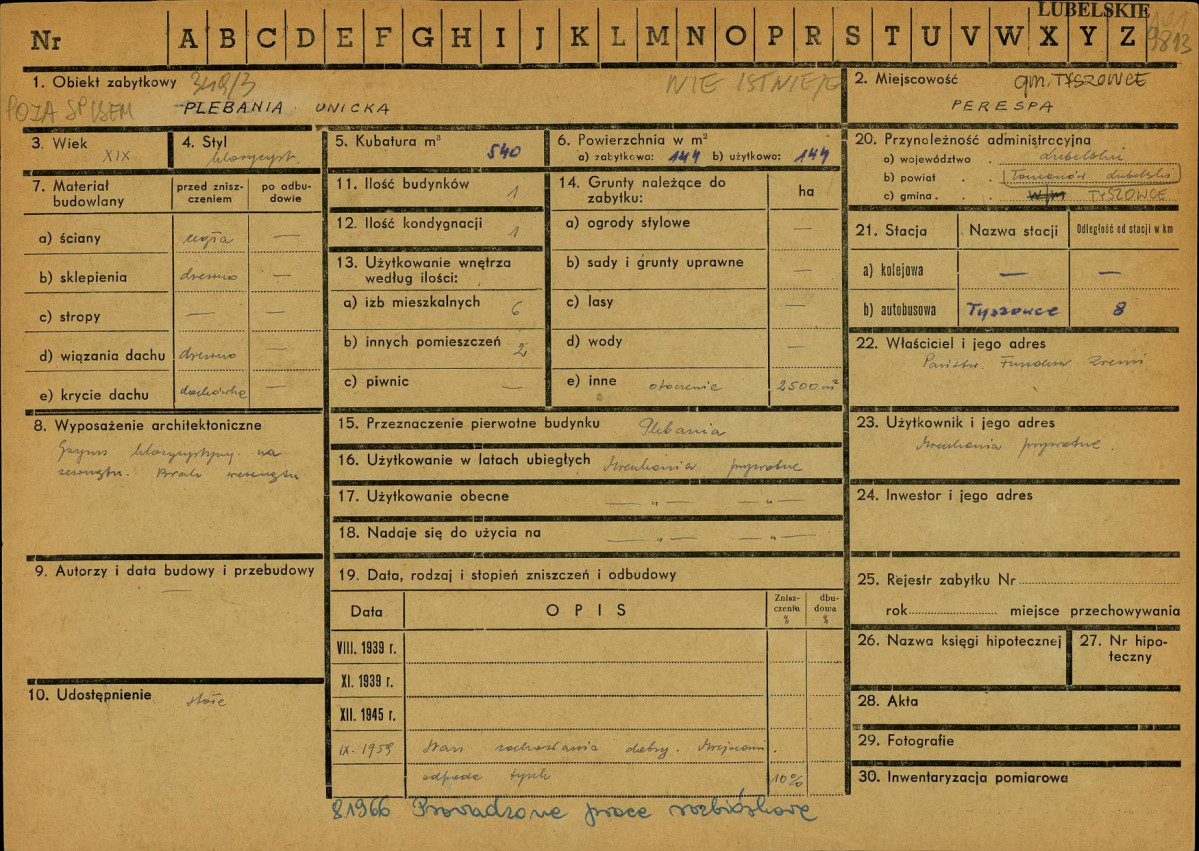 LUBELSKIE
Nr A B C D E F G H I J K L M N O P R S T U V W X Y Z
9813
1. Obiekt zabytkowy 349/3 NIE ISTNIEJE
POZA SPISEM PLEBANIA UNICKA
2. Miejscowość gm. TYSZOWCE
PERESPA
3. Wiek XIX
4. Styl klasycyst.
5. Kubatura m³ 540
6. Powierzchnia w m²
a) zabytkowa: 144 b) użytkowa: 144
7. Materiał budowlany
przed zniszczeniem
po odbudowie
a) ściany cegła —
b) sklepienia drewno —
c) stropy — —
d) wiązania dachu drewno —
e) krycie dachu dachówka —
8. Wyposażenie architektoniczne
Gzyms klasycystyczny na
zewnątrz. Brak wewnątrz
9. Autorzy i data budowy i przebudowy
—
10. Udostępnienie stałe
11. Ilość budynków 1
12. Ilość kondygnacji 1
13. Użytkowanie wnętrza
według ilości:
a) izb mieszkalnych 6
b) innych pomieszczeń 2
c) piwnic —
14. Grunty należące do
zabytku: ha
a) ogrody stylowe —
b) sady i grunty uprawne —
c) lasy —
d) wody —
e) inne otoczenie 2500 m²
15. Przeznaczenie pierwotne budynku Plebania
16. Użytkowanie w latach ubiegłych Mieszkania prywatne
17. Użytkowanie obecne — „ — — „ —
18. Nadaje się do użycia na — „ — — „ —
19. Data, rodzaj i stopień zniszczeń i odbudowy
Data OPIS Zniszczenia % dbudowa %
VIII. 1939 r.
XI. 1939 r.
XII. 1945 r.
IX. 1959 Stan zachowania dobry. Miejscami
odpada tynk 10%
8.1966 Prowadzone prace rozbiórkowe
20. Przynależność administracyjna
a) województwo . lubelskie
b) powiat . . Tomaszów Lubelski
c) gmina . . . w/m TYSZOWCE
21. Stacja Nazwa stacji Odległość od stacji w km
a) kolejowa — —
b) autobusowa Tyszowce 8
22. Właściciel i jego adres
Państw. Fundusz Ziemi
23. Użytkownik i jego adres
Mieszkania prywatne.
24. Inwestor i jego adres
25. Rejestr zabytku Nr
rok miejsce przechowywania
26. Nazwa księgi hipotecznej
27. Nr hipoteczny
28. Akta
29. Fotografie
30. Inwentaryzacja pomiarowa